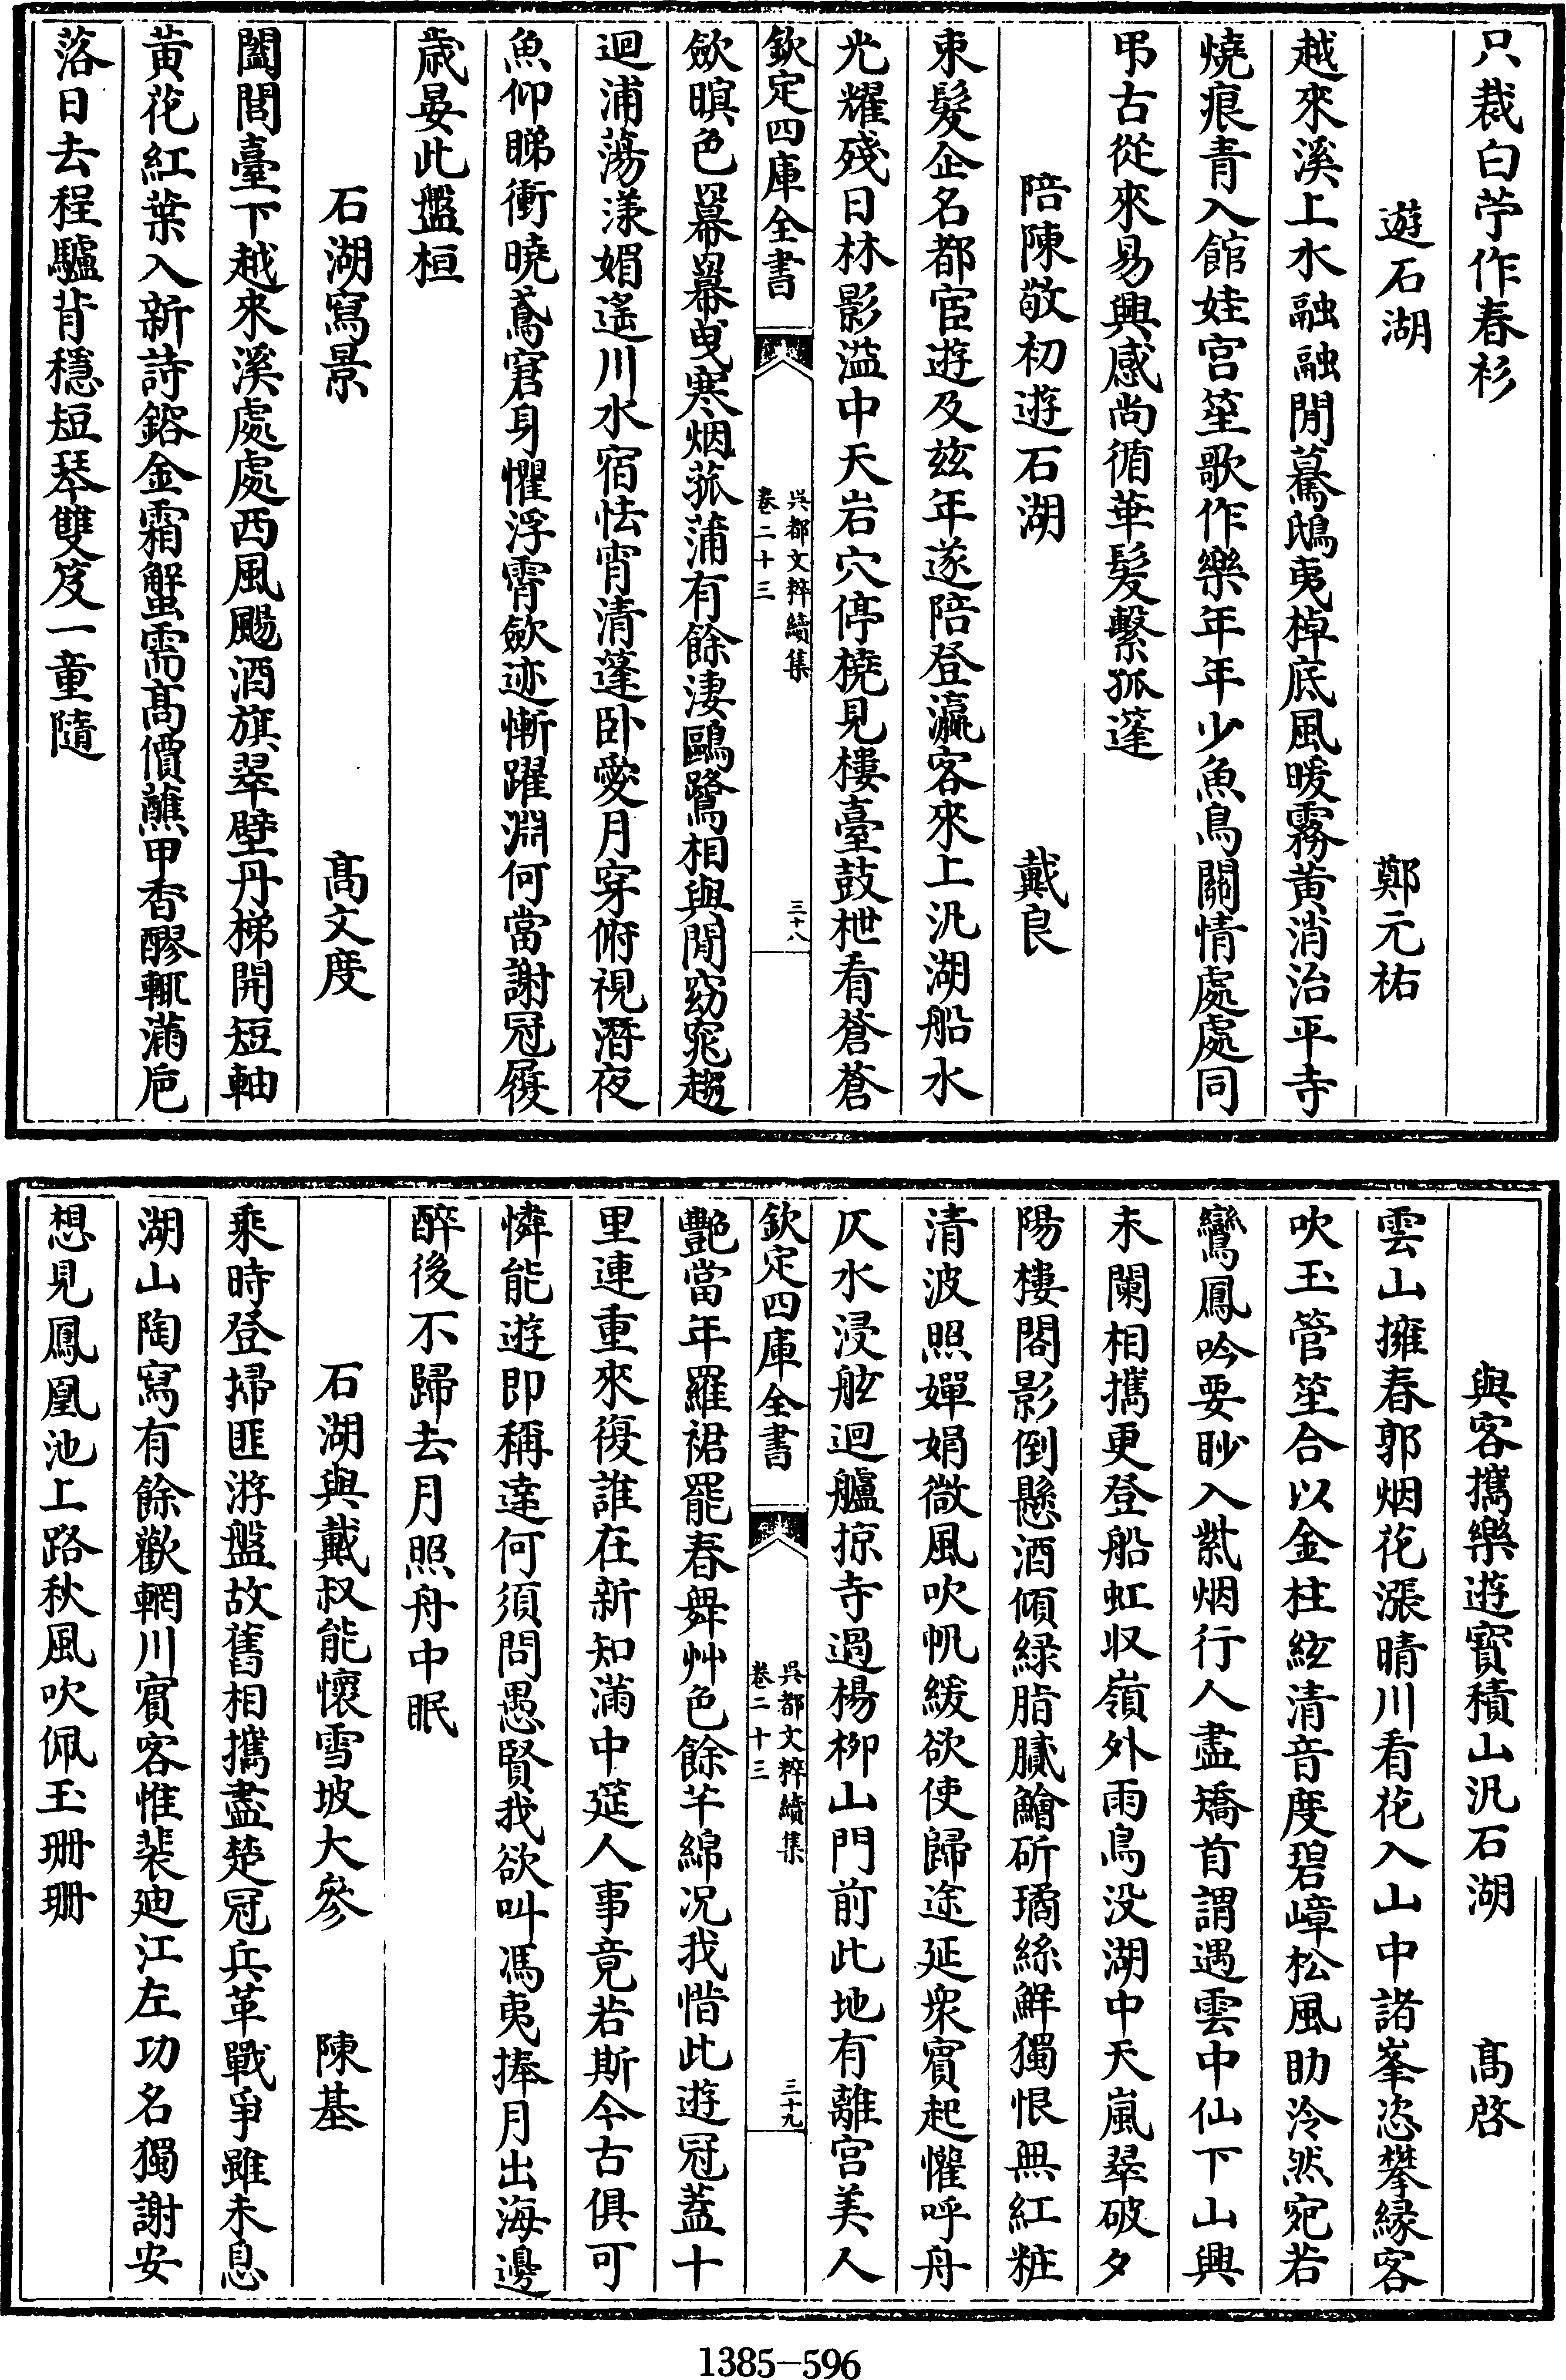 只裁白苧作春衫
遊石湖 鄭元祐
越來溪上水融融閒驀鴟夷棹底風暖霧黄消治平寺
燒痕青入館娃宫笙歌作樂年年少魚鳥關情處處同
弔古從來易興感尚循華髮繫孤篷
陪陳敬初遊石湖 戴良
束髮企名都宦遊及兹年遂陪登瀛客來上汎湖船水
光耀殘日林影溢中天岩穴停橈見樓臺鼓枻看蒼蒼
欽定四庫全書 吳都文粹續集 卷二十三 三十八
歛暝色冪冪曳寒烟菰蒲有餘淒鷗鷺相與閒窈窕趨
迴浦蕩漾媚遙川水宿怯宵清蓬卧愛月穿俯視潛夜
魚仰睇衝曉鳶窘身懼浮霄歛迹慚躍淵何當謝冠履
歲晏此盤桓
石湖寫景 髙文度
闔閭臺下越來溪處處西風颺酒旗翠壁丹梯開短軸
黄花紅葉入新詩鎔金霜蟹需髙價蘸甲香醪輒滿巵
落日去程驢背穩短琴雙笈一童隨
與客攜樂遊寳積山汎石湖 髙啓
雲山擁春郭烟花漲晴川看花入山中諸峯恣攀縁客
吹玉管笙合以金柱絃清音度碧嶂松風助泠然宛若
鸞鳳吟要眇入紫烟行人盡矯首謂遇雲中仙下山興
未闌相攜更登船虹収嶺外雨鳥没湖中天嵐翠破夕
陽樓閣影倒懸酒傾緑脂膩鱠斫璚絲鮮獨恨無紅粧
清波照嬋娟微風吹帆緩欲使歸途延衆賓起懽呼舟
仄水浸舷迴艫掠寺過楊栁山門前此地有離宫美人
欽定四庫全書 吳都文粹續集 卷二十三 三十九
艷當年羅裙罷春舞艸色餘芊綿况我惜此遊冠蓋十
里連重來復誰在新知滿中筵人事竟若斯今古俱可
憐能遊即稱達何須問愚賢我欲叫馮夷捧月出海邊
醉後不歸去月照舟中眠
石湖與戴叔能懷雪坡大參 陳基
乘時登掃匪游盤故舊相攜盡楚冠兵革戰爭雖未息
湖山陶寫有餘歡輞川賓客惟裴廸江左功名獨謝安
想見鳳凰池上路秋風吹佩玉珊珊
1385-596